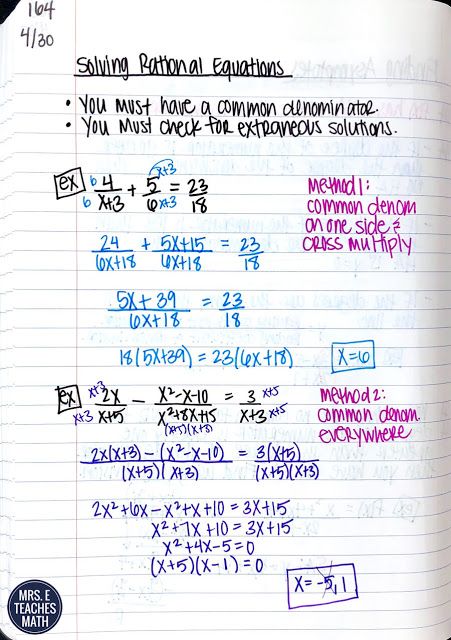 164
4/30
Solving Rational Equations
• You must have a common denominator.
• You must check for extraneous solutions.
ex 6 4/x+3 6 + 5/6 x+3 x+3 = 23/18
Method 1:
common denom
on one side &
cross multiply
24/6x+18 + 5x+15/6x+18 = 23/18
5x+39/6x+18 = 23/18
18(5x+39) = 23(6x+18)
x=6
ex x+3 2x/x+5 x+3 − x²-x-10/x²+8x+15 = 3/x+3 x+5 x+5
(x+5)(x+3)
Method 2:
common denom.
everywhere
2x(x+3) − (x²-x-10)/(x+5)(x+3) = 3(x+5)/(x+5)(x+3)
2x²+6x-x²+x+10 = 3x+15
x²+7x+10 = 3x+15
x²+4x-5=0
(x+5)(x-1)=0
x=-5,1
MRS. E
TEACHES
MATH